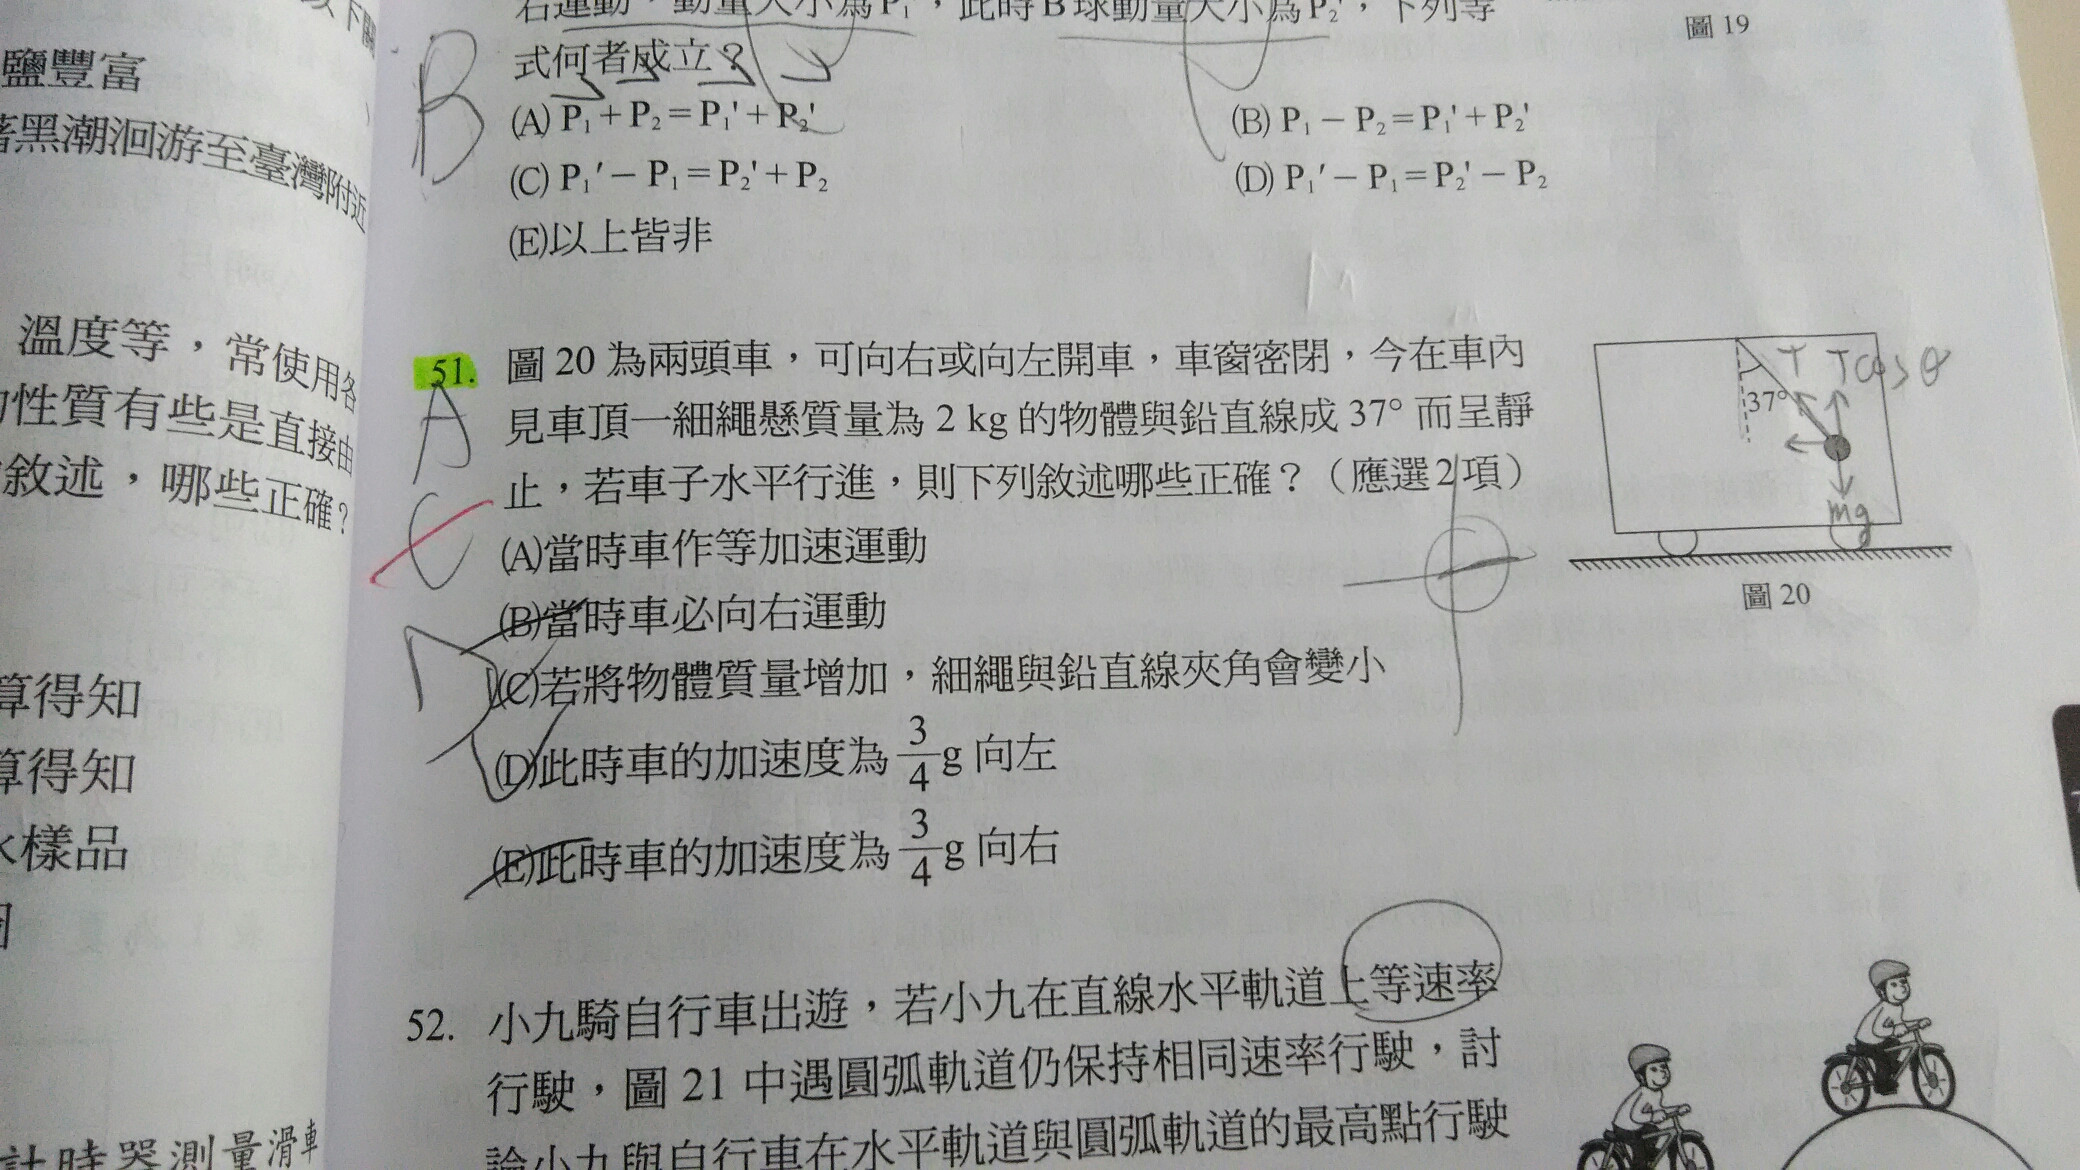 以下關
鹽豐富
著黑潮洄游至臺灣附近
溫度等，常使用各
性質有些是直接由
敘述，哪些正確？
算得知
算得知
水樣品
計時器測量滑車
右運動，動量大小為P₁'，此時B球動量大小為P₂'，下列等
式何者成立？
(A) P₁ + P₂ = P₁' + P₂'
(B) P₁ − P₂ = P₁' + P₂'
(C) P₁' − P₁ = P₂' + P₂
(D) P₁' − P₁ = P₂' − P₂
(E)以上皆非
B
圖 19
51. 圖 20 為兩頭車，可向右或向左開車，車窗密閉，今在車內
見車頂一細繩懸質量為 2 kg 的物體與鉛直線成 37° 而呈靜
止，若車子水平行進，則下列敘述哪些正確？（應選2項）
(A)當時車作等加速運動
(B)當時車必向右運動
(C)若將物體質量增加，細繩與鉛直線夾角會變小
(D)此時車的加速度為 3/4 g 向左
(E)此時車的加速度為 3/4 g 向右
A
C
D
T
Tcosθ
37°
mg
圖 20
52. 小九騎自行車出遊，若小九在直線水平軌道上等速率
行駛，圖 21 中遇圓弧軌道仍保持相同速率行駛，討
論小九與自行車在水平軌道與圓弧軌道的最高點行駛